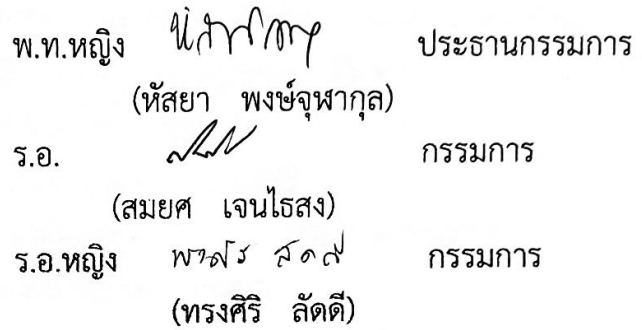 พ.ท.หญิง ประธานกรรมการ
(หัสยา พงษ์จุฬากุล)
ร.อ. กรรมการ
(สมยศ เจนไธสง)
ร.อ.หญิง กรรมการ
(ทรงศิริ ลัดดี)